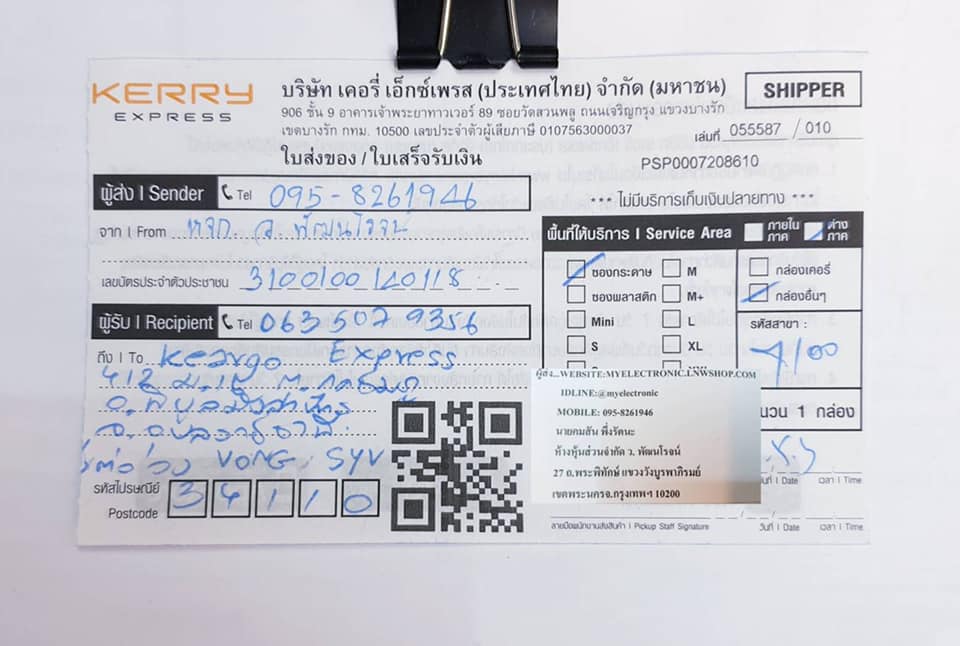 KERRY
EXPRESS
บริษัท เคอรี่ เอ็กซ์เพรส (ประเทศไทย) จำกัด (มหาชน)
906 ชั้น 9 อาคารเจ้าพระยาทาวเวอร์ 89 ซอยวัดสวนพลู ถนนเจริญกรุง แขวงบางรัก
เขตบางรัก กทม. 10500 เลขประจำตัวผู้เสียภาษี 0107563000037
SHIPPER
เล่มที่ 055587 / 010
ใบส่งของ / ใบเสร็จรับเงิน
PSP0007208610
ผู้ส่ง | Sender Tel 095-8261946
*** ไม่มีบริการเก็บเงินปลายทาง ***
จาก | From หจก. ว. พัฒนโรจน์
เลขบัตรประจำตัวประชาชน 3100100140118
พื้นที่ให้บริการ | Service Area ภายในภาค ต่างภาค
ซองกระดาษ M กล่องเคอรี่
ซองพลาสติก M+ กล่องอื่นๆ
Mini L รหัสสาขา :
S XL
ผู้รับ | Recipient Tel 0635079356
ถึง | To Keargo Express
412 ม.
อ.พิบูลมังสาหาร
จ.อุบลราชธานี
VONG SYV
รหัสไปรษณีย์ 34110
Postcode
WEBSITE:MYELECTRONIC.LNWSHOP.COM
IDLINE:@myelectronic
MOBILE: 095-8261946
นายคมสัน พึ่งรัตนะ
ห้างหุ้นส่วนจำกัด ว. พัฒนโรจน์
27 ถ.พระพิทักษ์ แขวงวังบูรพาภิรมย์
เขตพระนครจ.กรุงเทพฯ 10200
1 กล่อง
วันที่ | Date เวลา | Time
ลายมือพนักงานส่งสินค้า | Pickup Staff Signature วันที่ | Date เวลา | Time